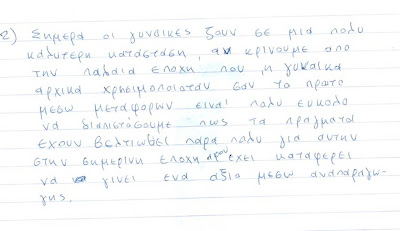 2) Σημερα οι γυναικες ζουν σε μια πολυ
καλυτερη κατασταση, αν κρινουμε απο
την παλαια εποχη που η γυναικα
αρχικα χρησιμοποιοταν σαν το πρωτο
μεσω μεταφορων ειναι πολυ ευκολο
να διαπιστόσουμε πως τα πραγματα
εχουν βελτιωθει παρα πολυ για αυτην
στην σημερινη εποχη αφου εχει καταφερει
να γινει ενα αξια μεσω αναπαραγω-
γης.